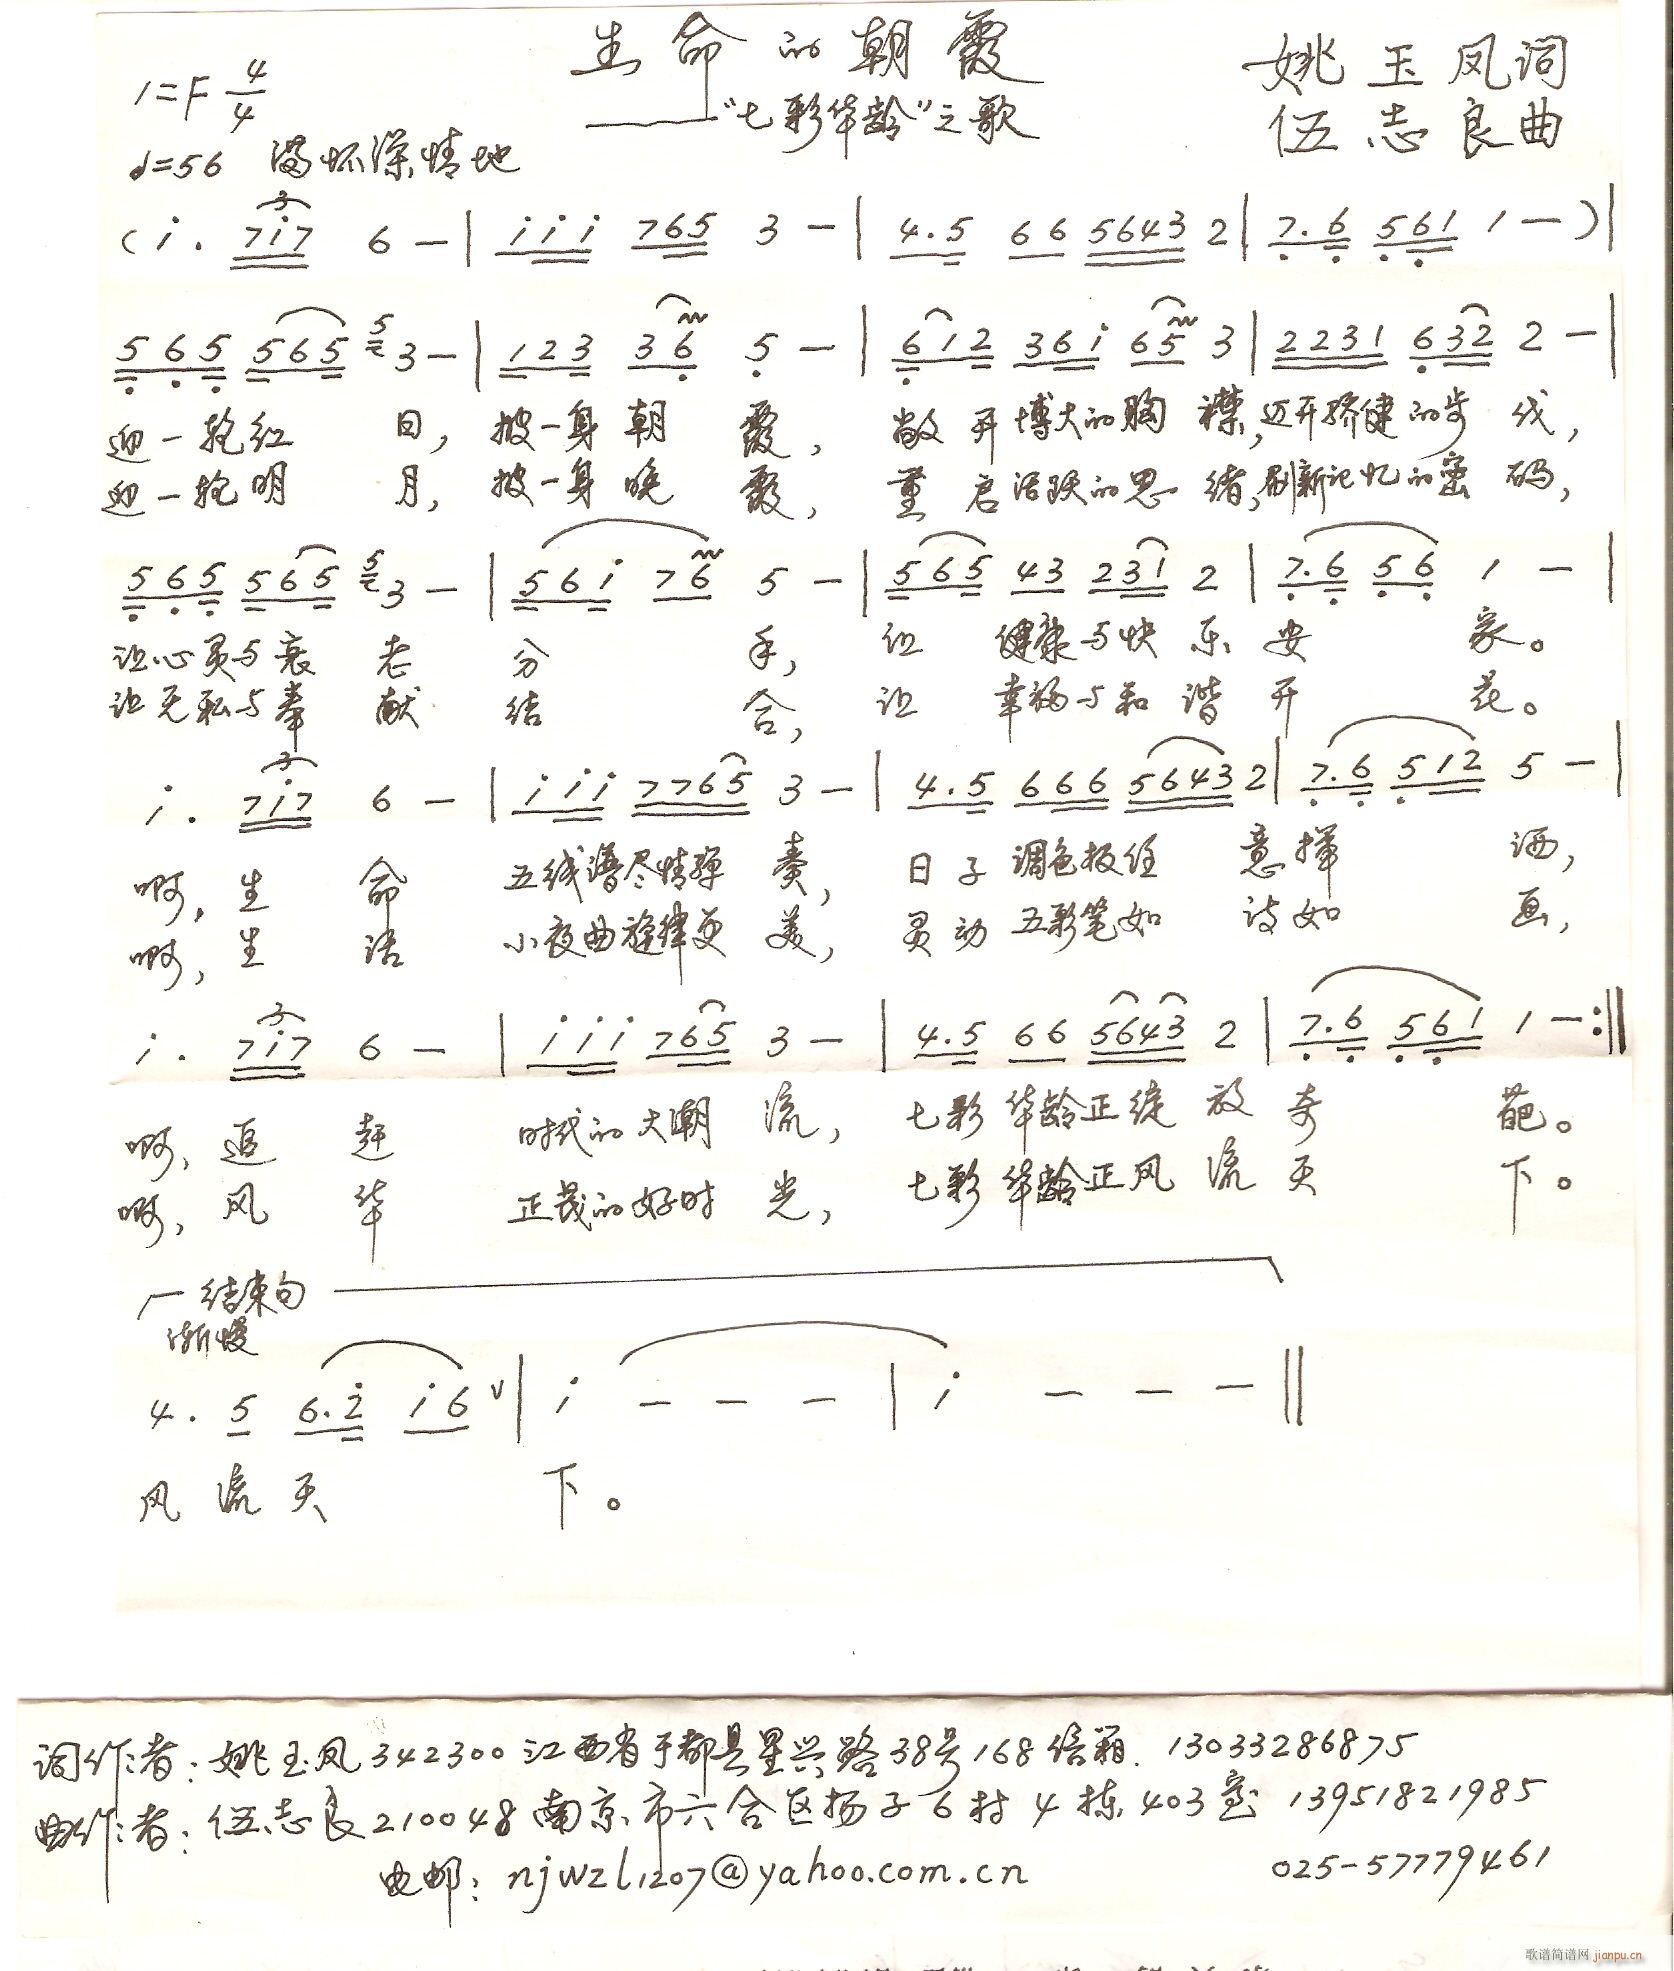 生命的朝霞
——“七彩华龄”之歌
姚玉凤词
伍志良曲
1=F 4/4
♩=56 满怀深情地
(i. 7i7 6 —| iii 765 3 —| 4.5 66 5643 2| 7.6 561 1 —)|
565 565 3 —| 123 36 5 —| 612 36i 65 3| 2231 632 2 —|
迎一轮红 日, 披一身朝 霞, 敞开博大的胸 襟, 迈开矫健的步 伐,
迎一轮明 月, 披一身晚 霞, 重启活跃的思 绪, 刷新记忆的密 码,
565 565 3 —| 56i 76 5 —| 565 43 231 2| 7.6 56 1 —|
让心灵与衰 老 分 手, 让 健康与快 乐 安 家。
让无私与奉 献 结 合, 让 幸福与和 谐 开 花。
i. 7i7 6 —| iii 7765 3 —| 4.5 666 5643 2| 7.6 512 5 —|
啊, 生 命 五线谱尽情弹 奏, 日子调色板任 意挥 洒,
啊, 生 活 小夜曲旋律更 美, 灵动五彩笔如 诗如 画,
i. 7i7 6 —| iii 765 3 —| 4.5 66 5643 2| 7.6 561 1 —:||
啊, 追 赶 时代的大潮 流, 七彩华龄正绽 放奇 葩。
啊, 风 华 正茂的好时 光, 七彩华龄正风 流天 下。
结束句
渐慢
4. 5 6.2 i6 ∨| i — — —| i — — —||
风流天 下。
词作者: 姚玉凤 342300 江西省于都县星兴路38号168信箱. 13033286875
曲作者: 伍志良 210048 南京市六合区扬子6村4栋403室 13951821985
电邮: njwzl1207@yahoo.com.cn 025-57779461
歌谱简谱网 jianpu.cn